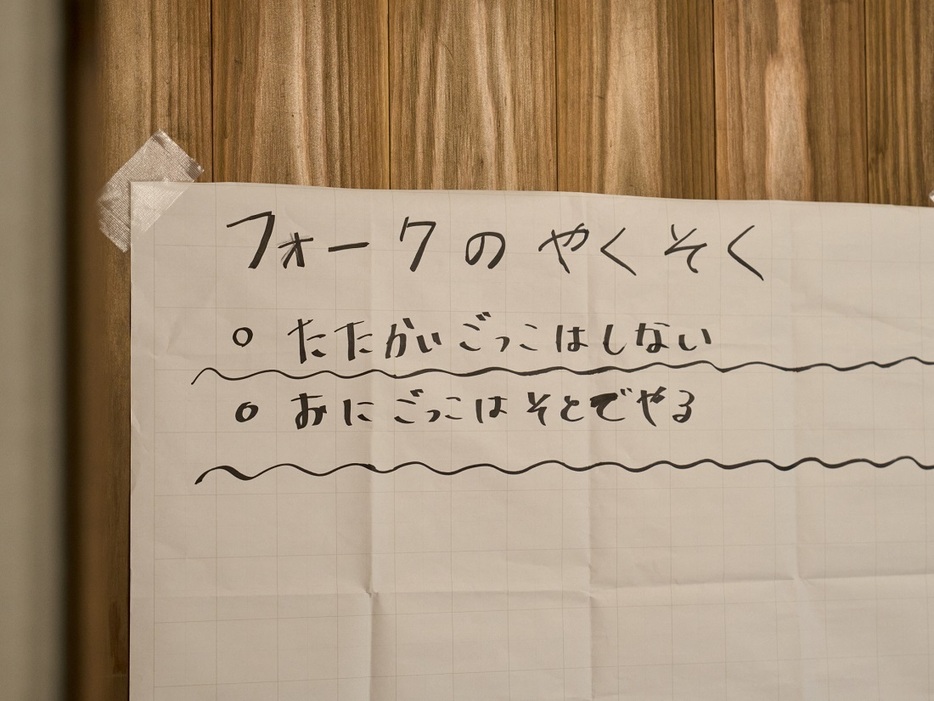 フォークのやくそく
○ たたかいごっこはしない
○ おにごっこはそとでやる